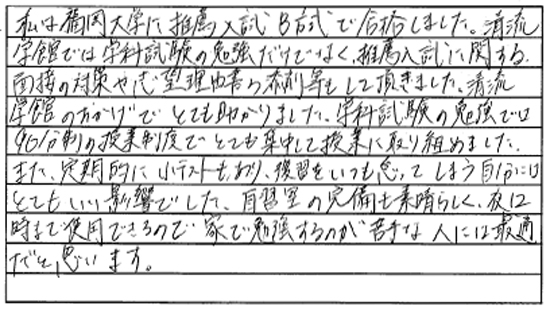 私は福岡大学に推薦入試B方式で合格しました。清流
学館では学科試験の勉強だけでなく、推薦入試に関する
面接の対策や志望理由書の添削等もして頂きました。清流
学館のおかげでとても助かりました。学科試験の勉強では
90分制の授業制度でとても集中して授業に取り組めました。
また、定期的に小テストもあり、復習をいつも怠ってしまう自分には
とてもいい影響でした。自習室の完備も素晴らしく、夜12
時まで使用できるので家で勉強するのが苦手な人には最適
だと思います。